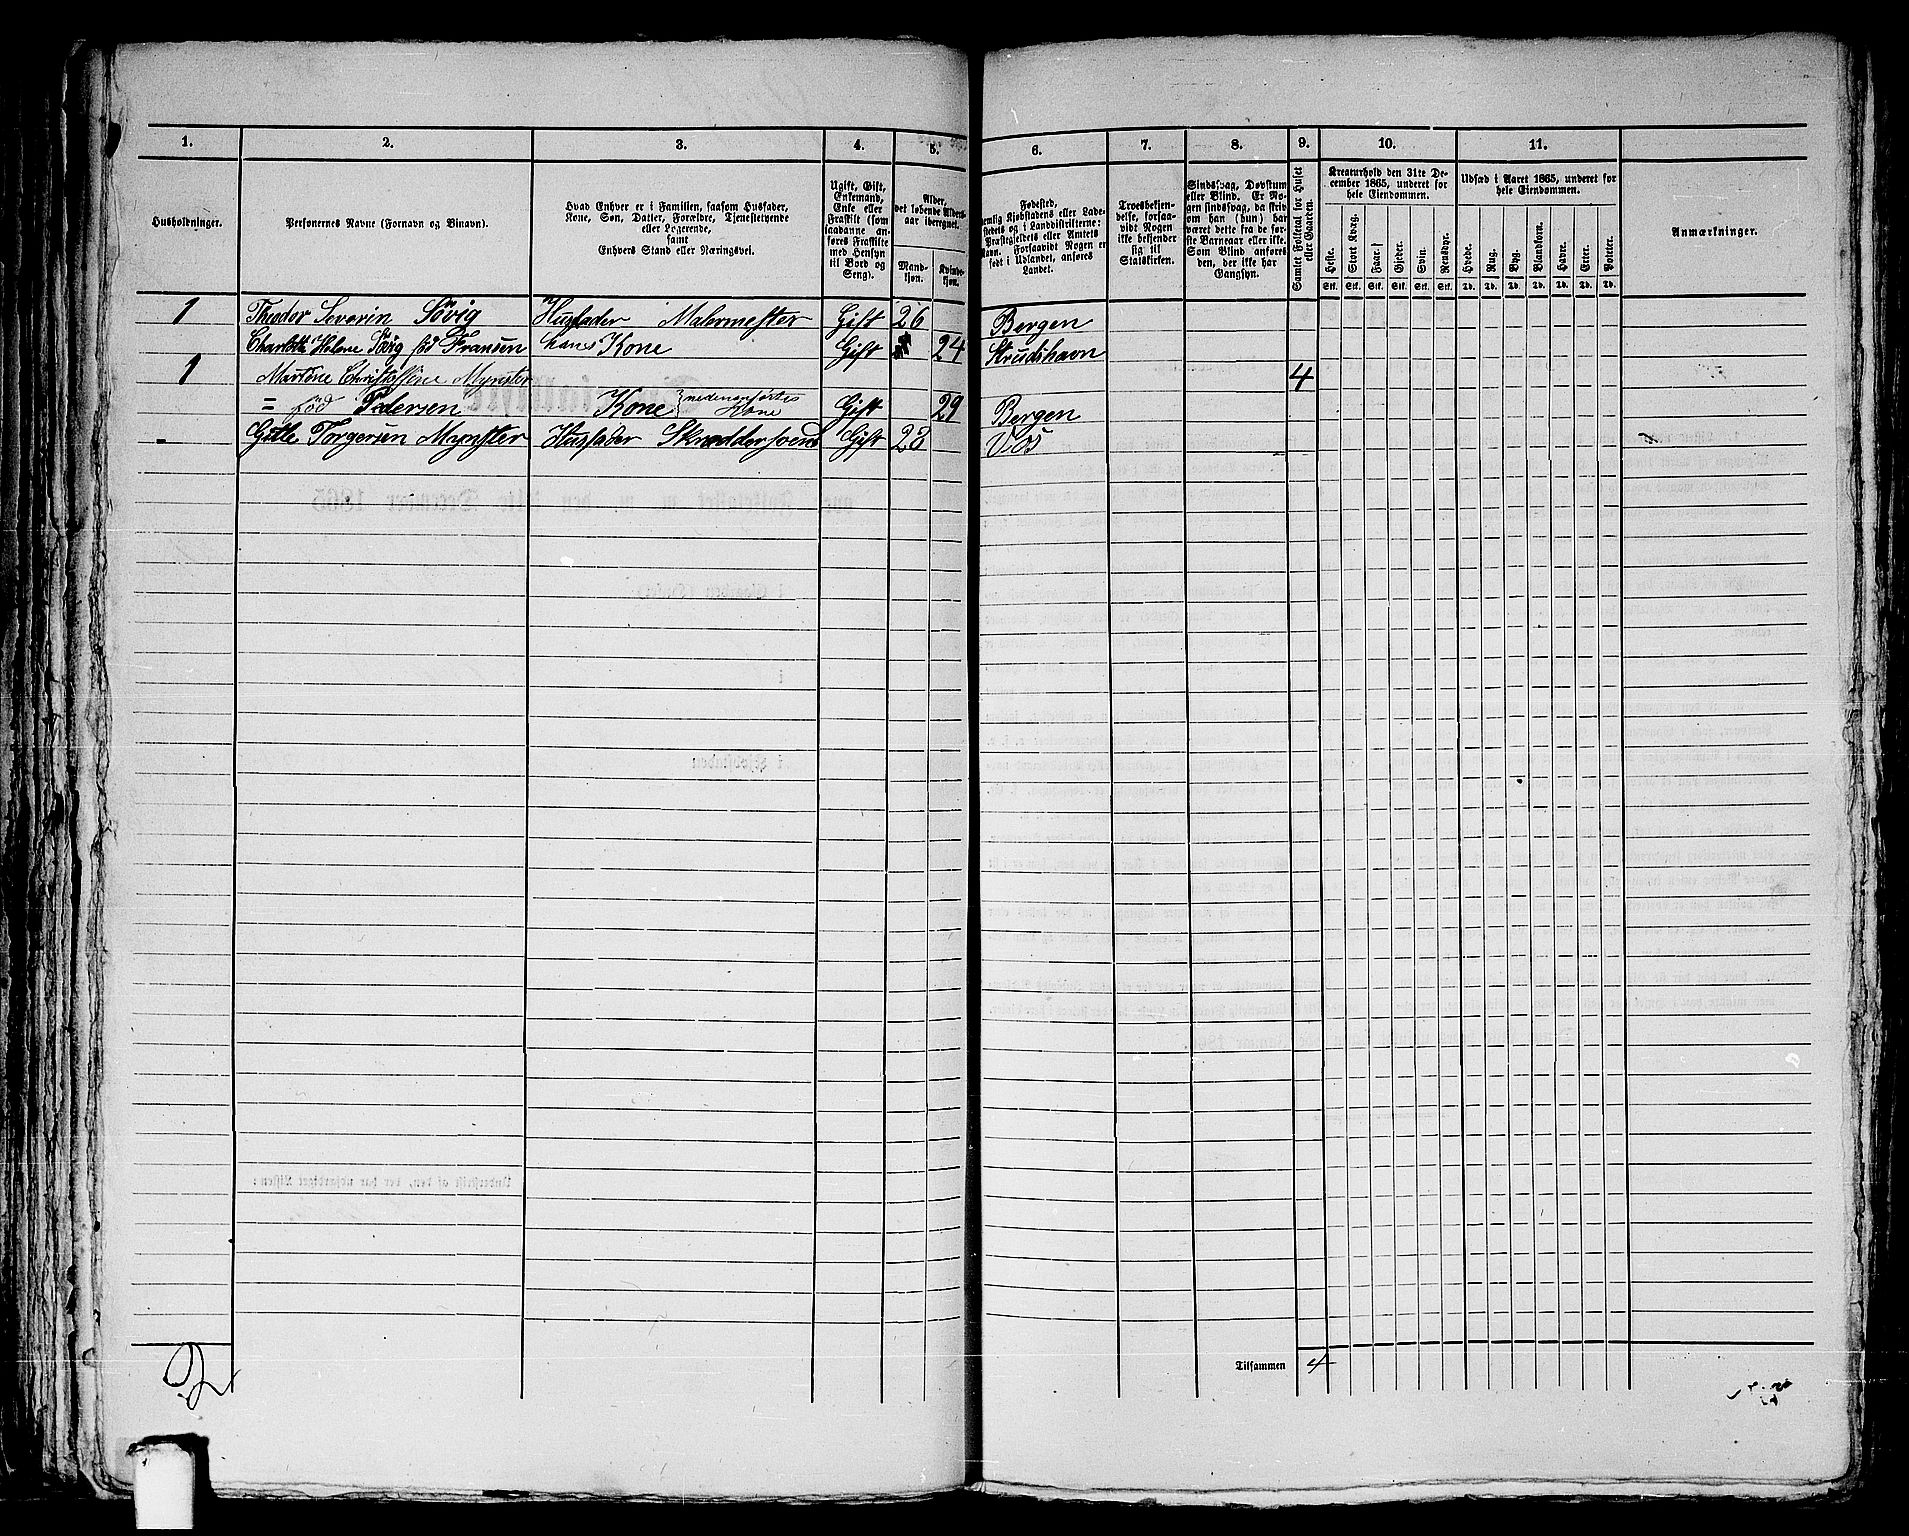 1. 2. 3. 4. 5. 6. 7. 8. 9. 10. 11.
Husholdninger.
Personernes Navne (Fornavn og Binavn).
Hvad Enhver er i Familien, saasom Husfader,
Kone, Søn, Datter, Forældre, Tjenestetyende
eller Logerende,
samt
Enhvers Stand eller Næringsvei.
Ugift, Gift,
Enkemand,
Enke eller
Fraskilt (som
saadanne an-
føres Fraskilte
med Hensyn
til Bord og
Seng).
Alder,
det løbende Alders-
aar iberegnet.
Mand-
kjøn.
Kvinde-
kjøn.
Fødested,
nemlig Kjøbstadens eller Lade-
stedets og i Landdistrikterne:
Præstegjeldets eller Amtets
Navn. Forsaavidt Nogen er
født i Udlandet, anføres
Landet.
Troesbekjen-
delse, forsaa-
vidt Nogen
ikke bekjender
sig til
Statskirken.
Sindssvag, Døvstum
eller Blind. Er No-
gen sindssvag, da skriv
om han (hun) har
været dette fra de før-
ste Barneaar eller ikke.
Som Blind anføres
den, der ikke har
Gangsyn.
Samlet Folketal for Huset
eller Gaarden.
Kreaturhold den 31te De-
cember 1865, underet for
hele Eiendommen.
Heste. Stort Kvæg. Faar. Gjeder. Svin. Rensdyr.
Stk. Stk. Stk. Stk. Stk. Stk.
Udsæd i Aaret 1865, underet for
hele Eiendommen.
Hvede. Rug. Byg. Blandkorn. Havre. Erter. Poteter.
Td. Td. Td. Td. Td. Td. Td.
Anmærkninger.
1 Theodor Severin Sövig Husfader Malermester Gift 26 Bergen
Charlotte Helene Sövig föd Fransen hans Kone Gift 24 Strudshavn
1 Martine Christoffine Mynster 4
= föd Pedersen Kone nedenanførtes Kone Gift 29 Bergen
Gitle Torgersen Mynster Husfader Skreddersvend Gift 23 Vos
2
Tilsammen 4